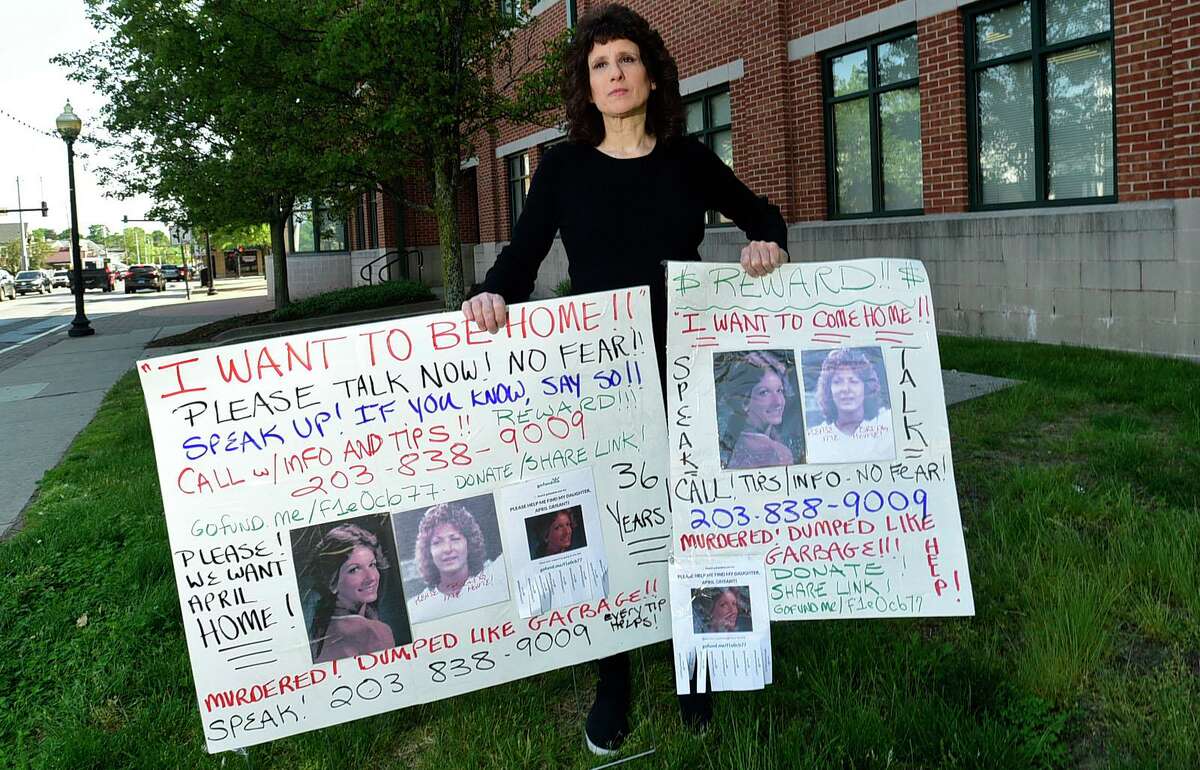 "I WANT TO BE HOME!!"
PLEASE TALK NOW! NO FEAR!!
SPEAK UP! IF YOU KNOW, SAY SO!!
REWARD!!!
CALL w/INFO AND TIPS!!
203-838-9009
GOFUND.me/F1e0cb77. DONATE/SHARE LINK!
PLEASE!
WE WANT
APRIL
HOME!
PLEASE HELP ME FIND MY DAUGHTER,
36
YEARS!
MURDERED! DUMPED LIKE GARBAGE!!
EVERY TIP
HELPS!
SPEAK! 203 838-9009
$ REWARD!! $
"I WANT TO COME HOME!!
SPEAK
TALK
CALL! TIPS/INFO-NO FEAR!
203-838-9009
MURDERED! DUMPED LIKE
GARBAGE!!
HELP!
DONATE!
SHARE LINK!
GOFUND.me/F1e0cb77
PLEASE HELP ME FIND